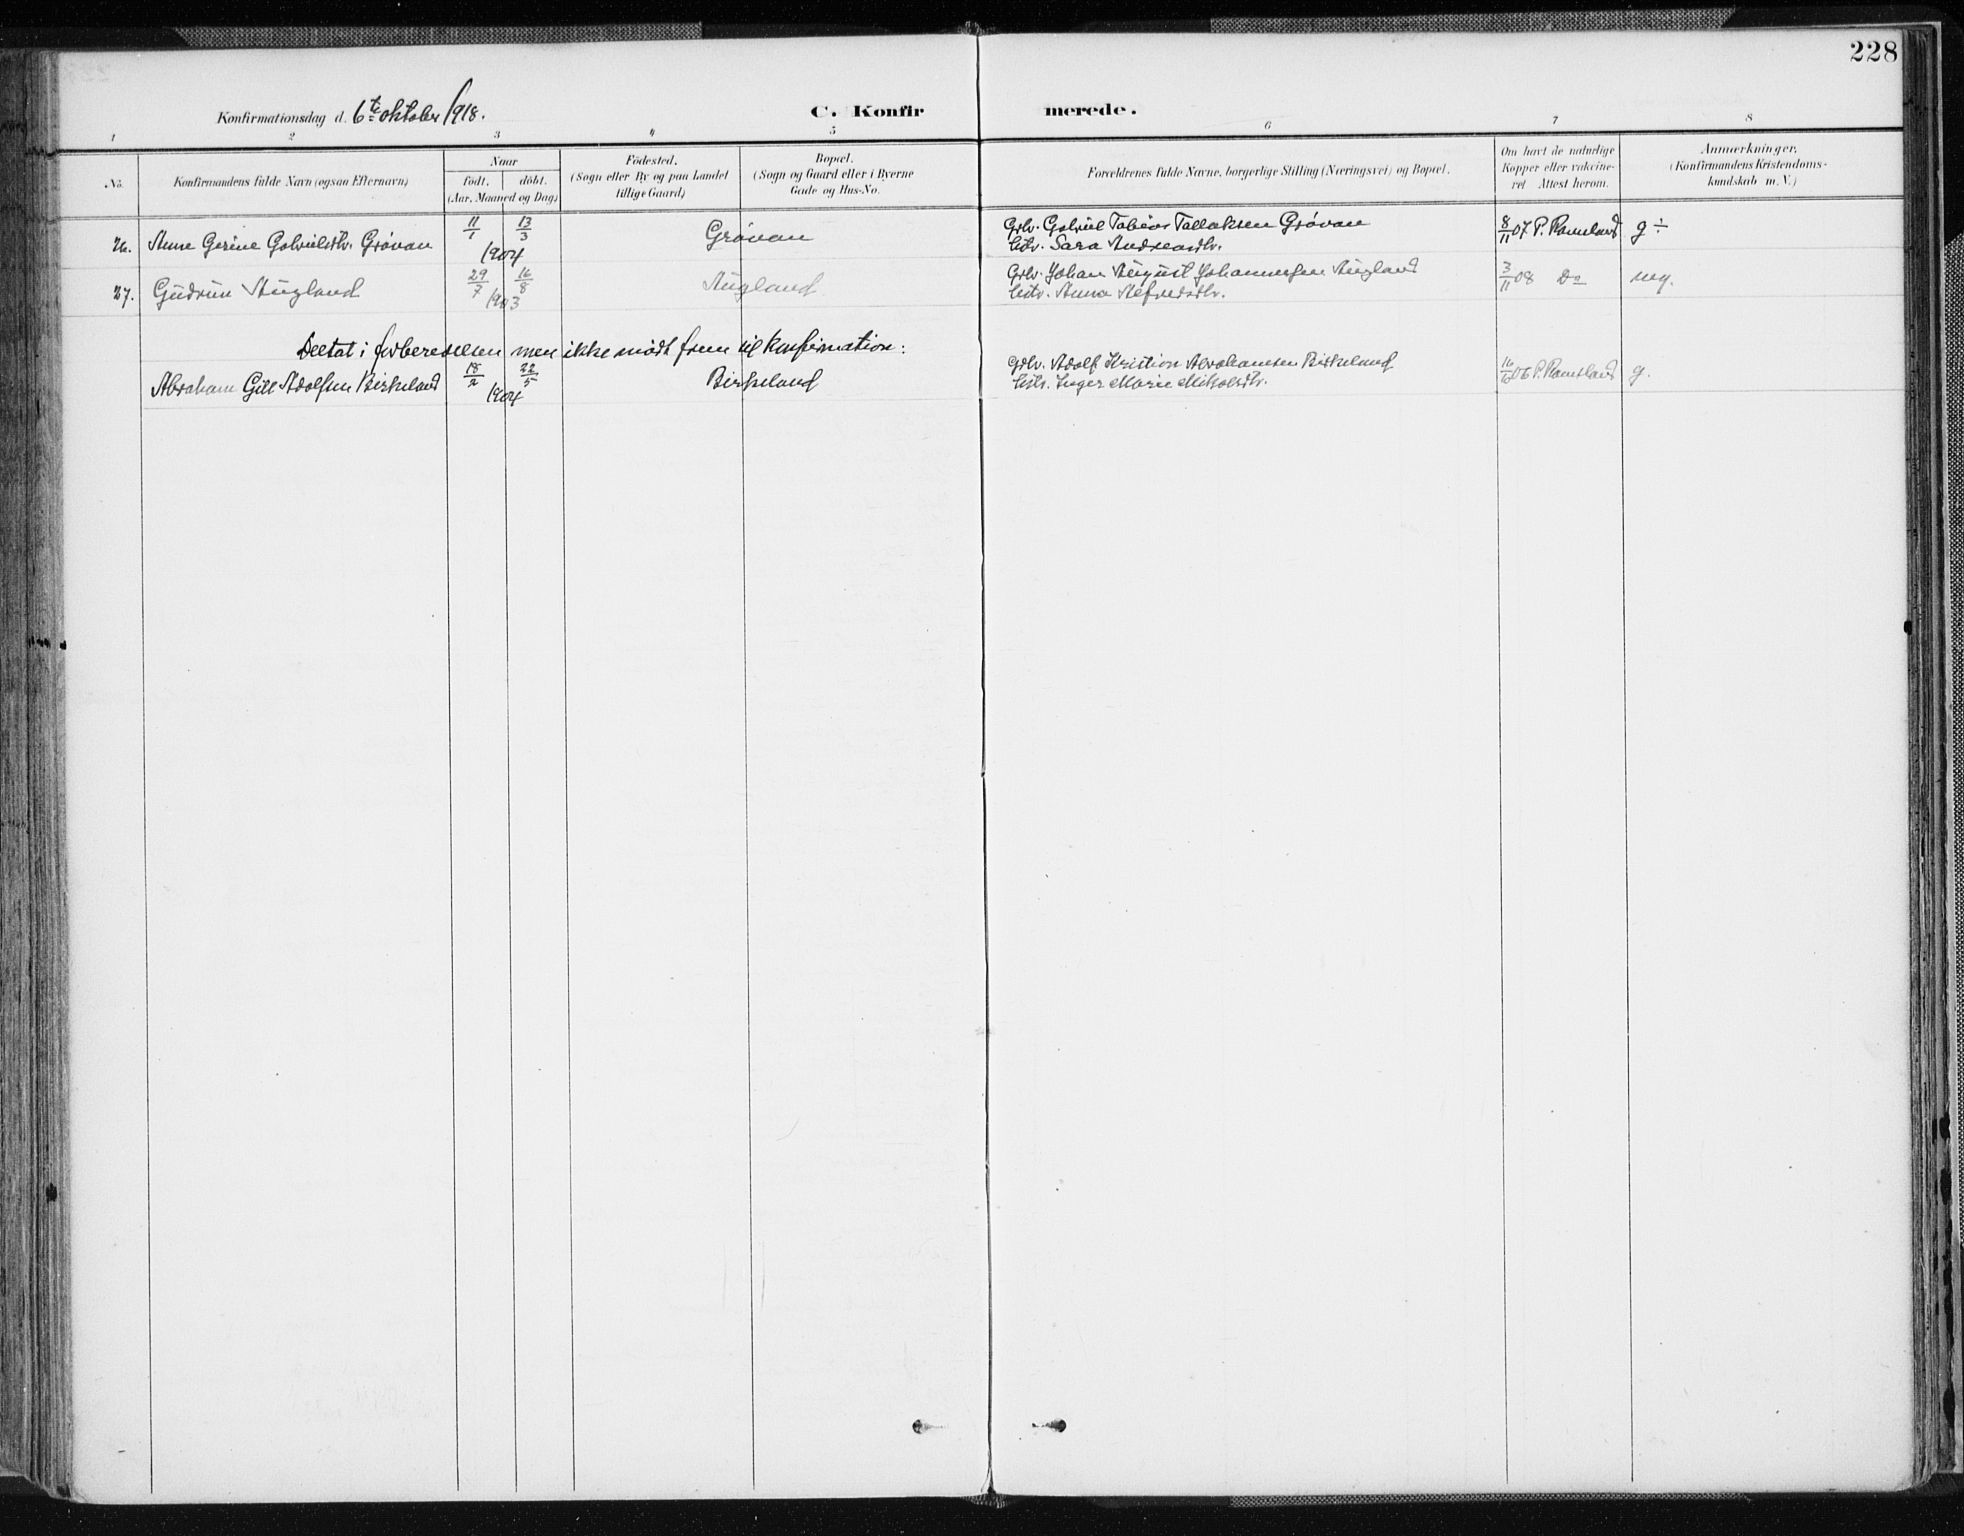 228
Konfirmationsdag d. 6te oktober 1918.
C. Konfirmerede.
1 2 3 4 5 6 7 8
No.
Konfirmandens fulde Navn (ogsaa Efternavn)
Naar
født. døbt.
(Aar, Maaned og Dag)
Födested.
(Sogn eller By og paa Landet
tillige Gaard)
Bopæl.
(Sogn og Gaard eller i Byerne
Gade og Hus-No.
Forældrenes fulde Navne, borgerlige Stilling (Næringsvei) og Bopæl.
Om havt de naturlige
Kopper eller vakcine-
ret Attest herom.
Anmærkninger,
(Konfirmandens Kristendoms-
kundskab m. V.)
26. Anne Gerine Gabrielsdtr. Grövan 11/1 13/3 1904 Grövan Grbr. Gabriel Tobias Tallaksen Grövan 8/11 07 P. Ramsland g ÷
Sara Andreasdtr.
27. Gudrun Augland 29/7 16/8 1903 Augland Grbr. Johan August Johannessen Augland 3/11 08 Do mg.
Anna Alfredsdtr.
Deltat i forberedelsen men ikke mödt frem til konfirmation:
Abraham Gill Adolfsen Birkeland 18/2 22/5 1904 Birkeland Grbr. Adolf Kristian Abrahamsen Birkeland 06 P. Ramsland g.
Inger Marie